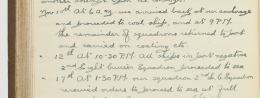 another
Nov 11th At 6 a.m. we arrived back at our anchorage
and proceeded to coal ship, and at 9 P.M.
the remainder of squadrons returned to port
and carried on coaling etc.
" 12th At 10-30 P.M. All ships in port negative
2nd Light Cruiser Squadron proceeded to sea
" 17th At 1-30 P.M. our squadron 2nd & 6 Squadron
received orders to proceed to sea at full